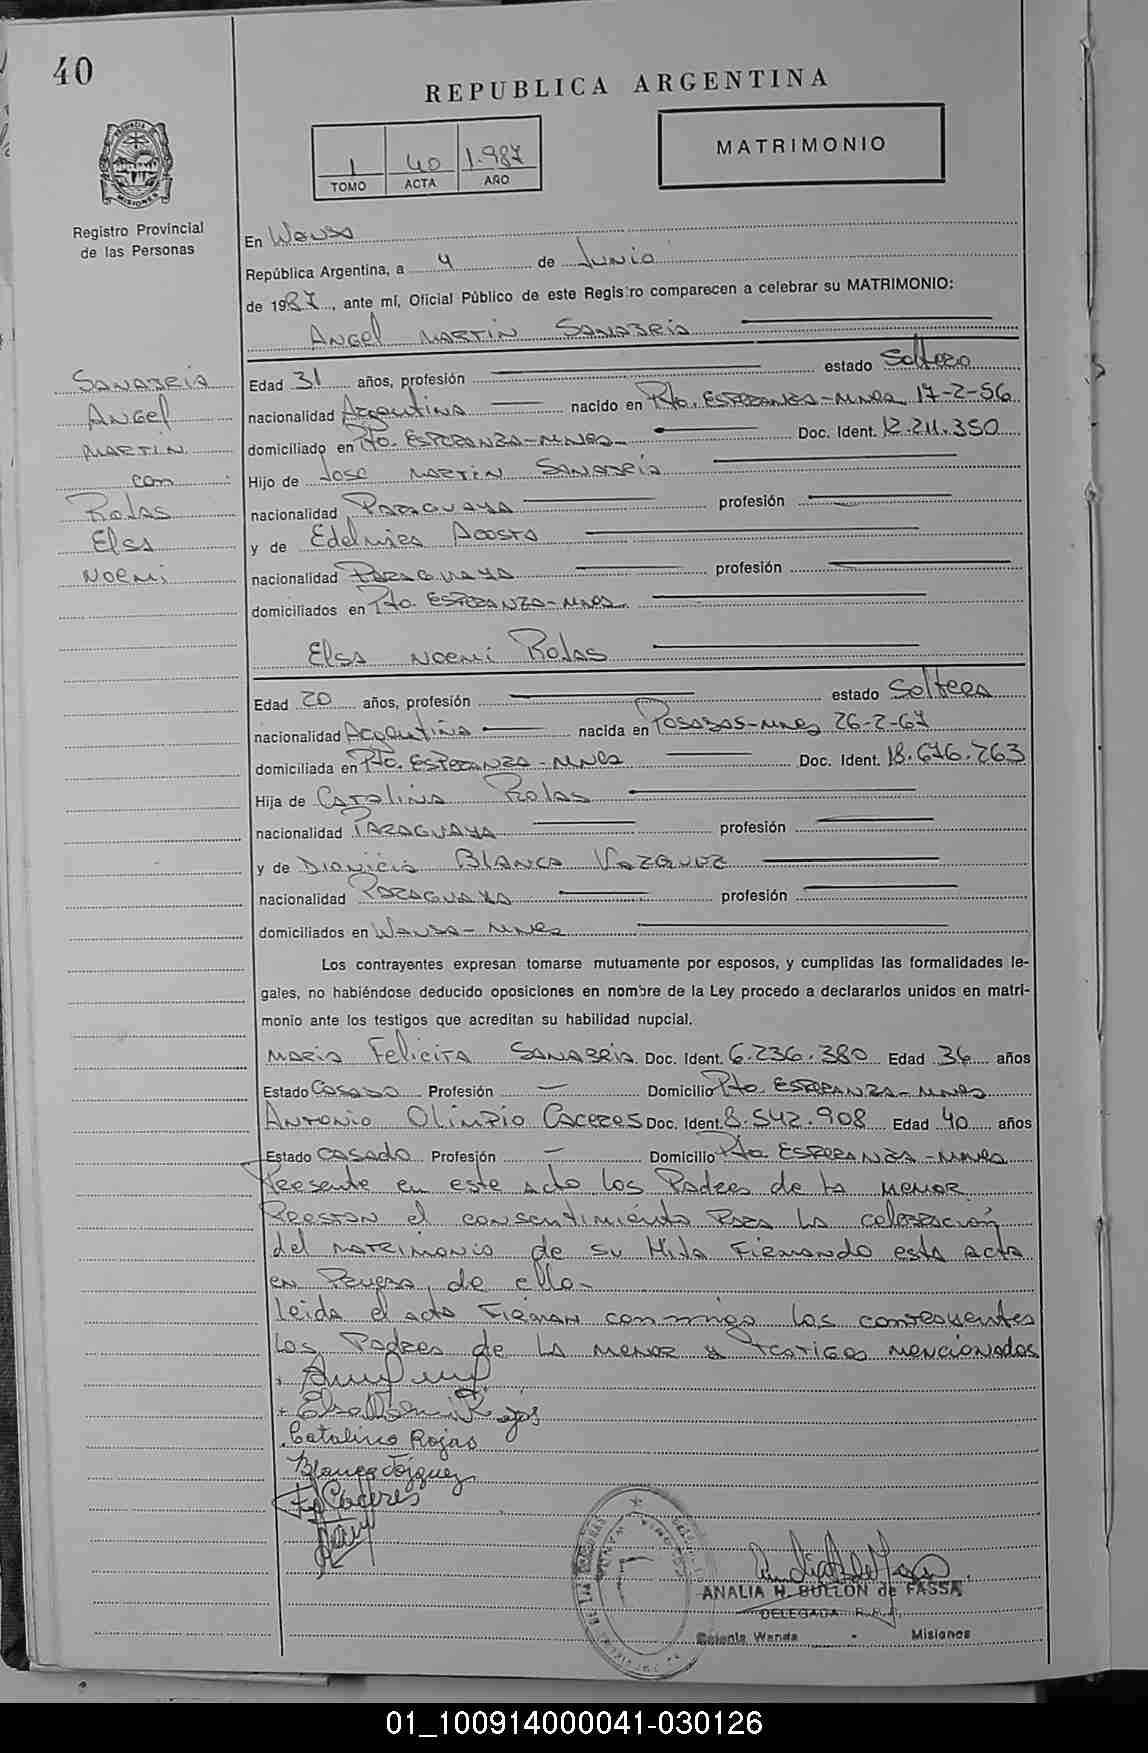 40
REPUBLICA ARGENTINA
1 40 1.987
TOMO ACTA AÑO
MATRIMONIO
PROVINCIA DE MISIONES
Registro Provincial
de las Personas
En Wanda
República Argentina, a 4 de Junio
de 1987, ante mí, Oficial Público de este Registro comparecen a celebrar su MATRIMONIO:
Angel Martin Sanabria
Sanabria
Angel
Martin
con
Rojas
Elsa
Noemi
Edad 31 años, profesión estado Soltero
nacionalidad Argentina nacido en Pto. Esperanza-Mnes 17-2-56
domiciliado en Pto. Esperanza-Mnes Doc. Ident. 12.211.350
Hijo de Jose Martin Sanabria
nacionalidad Paraguaya profesión
y de Edelmira Acosta
nacionalidad Paraguaya profesión
domiciliados en Pto. Esperanza-Mnes
Elsa Noemi Rojas
Edad 20 años, profesión estado Soltera
nacionalidad Argentina nacida en Posadas-Mnes 26-2-67
domiciliada en Pto. Esperanza-Mnes Doc. Ident. 18.676.263
Hija de Catalino Rojas
nacionalidad Paraguaya profesión
y de Dionicia Blanca Vazquez
nacionalidad Paraguaya profesión
domiciliados en Wanda-Mnes
Los contrayentes expresan tomarse mutuamente por esposos, y cumplidas las formalidades le-
gales, no habiéndose deducido oposiciones en nombre de la Ley procedo a declararlos unidos en matri-
monio ante los testigos que acreditan su habilidad nupcial.
Maria Felicita Sanabria Doc. Ident. 6.236.380 Edad 36 años
Estado Casada Profesión — Domicilio Pto. Esperanza-Mnes
Antonio Olimpio Caceres Doc. Ident. 8.542.908 Edad 40 años
Estado Casado Profesión — Domicilio Pto Esperanza-Mnes
Presente en este acto los Padres de la menor
Prestan el consentimiento para la celebración
del matrimonio de su Hija Firmando esta acta
en Prueba de ello-
Leida el acta Firman conmigo los contrayentes
los Padres de la menor y testigos mencionados
Elsa Noemi Rojas
Catalino Rojas
Blanca Vázquez
Caceres
ANALIA H. BULLON de FASSA
DELEGADA R.P.P.
Colonia Wanda - Misiones
01_100914000041-030126